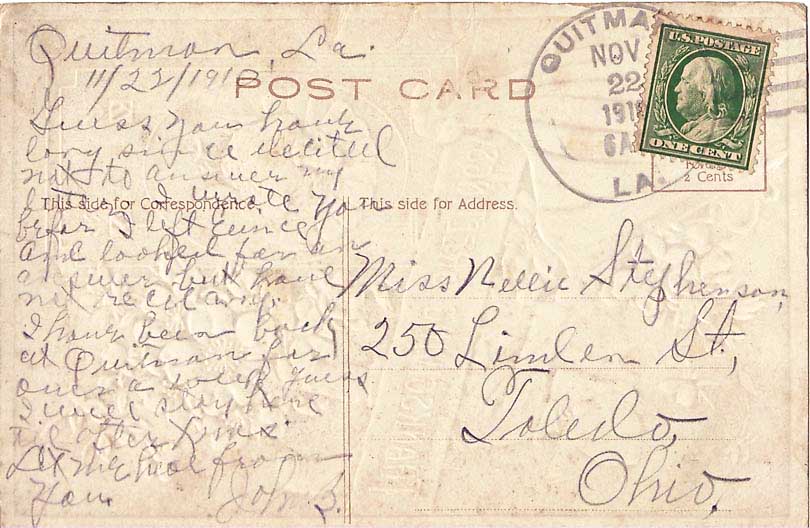 Quitman, La.
11/22/191
POST CARD
Guess you have
long since decided
not to answer my
letter. I wrote you
befor I left Eunice
and looked for an
answer but have
not recd any.
I have been back
at Quitman for
over a week. Guess
I will stay here
til after Xmas
Let me hear from
you.
John B.
This side for Correspondence.
This side for Address.
QUITMA
NOV
22
191
6A
LA.
U.S. POSTAGE
ONE CENT
2 Cents
Miss Nellie Stephenson,
250 Linden St.,
Toledo,
Ohio.